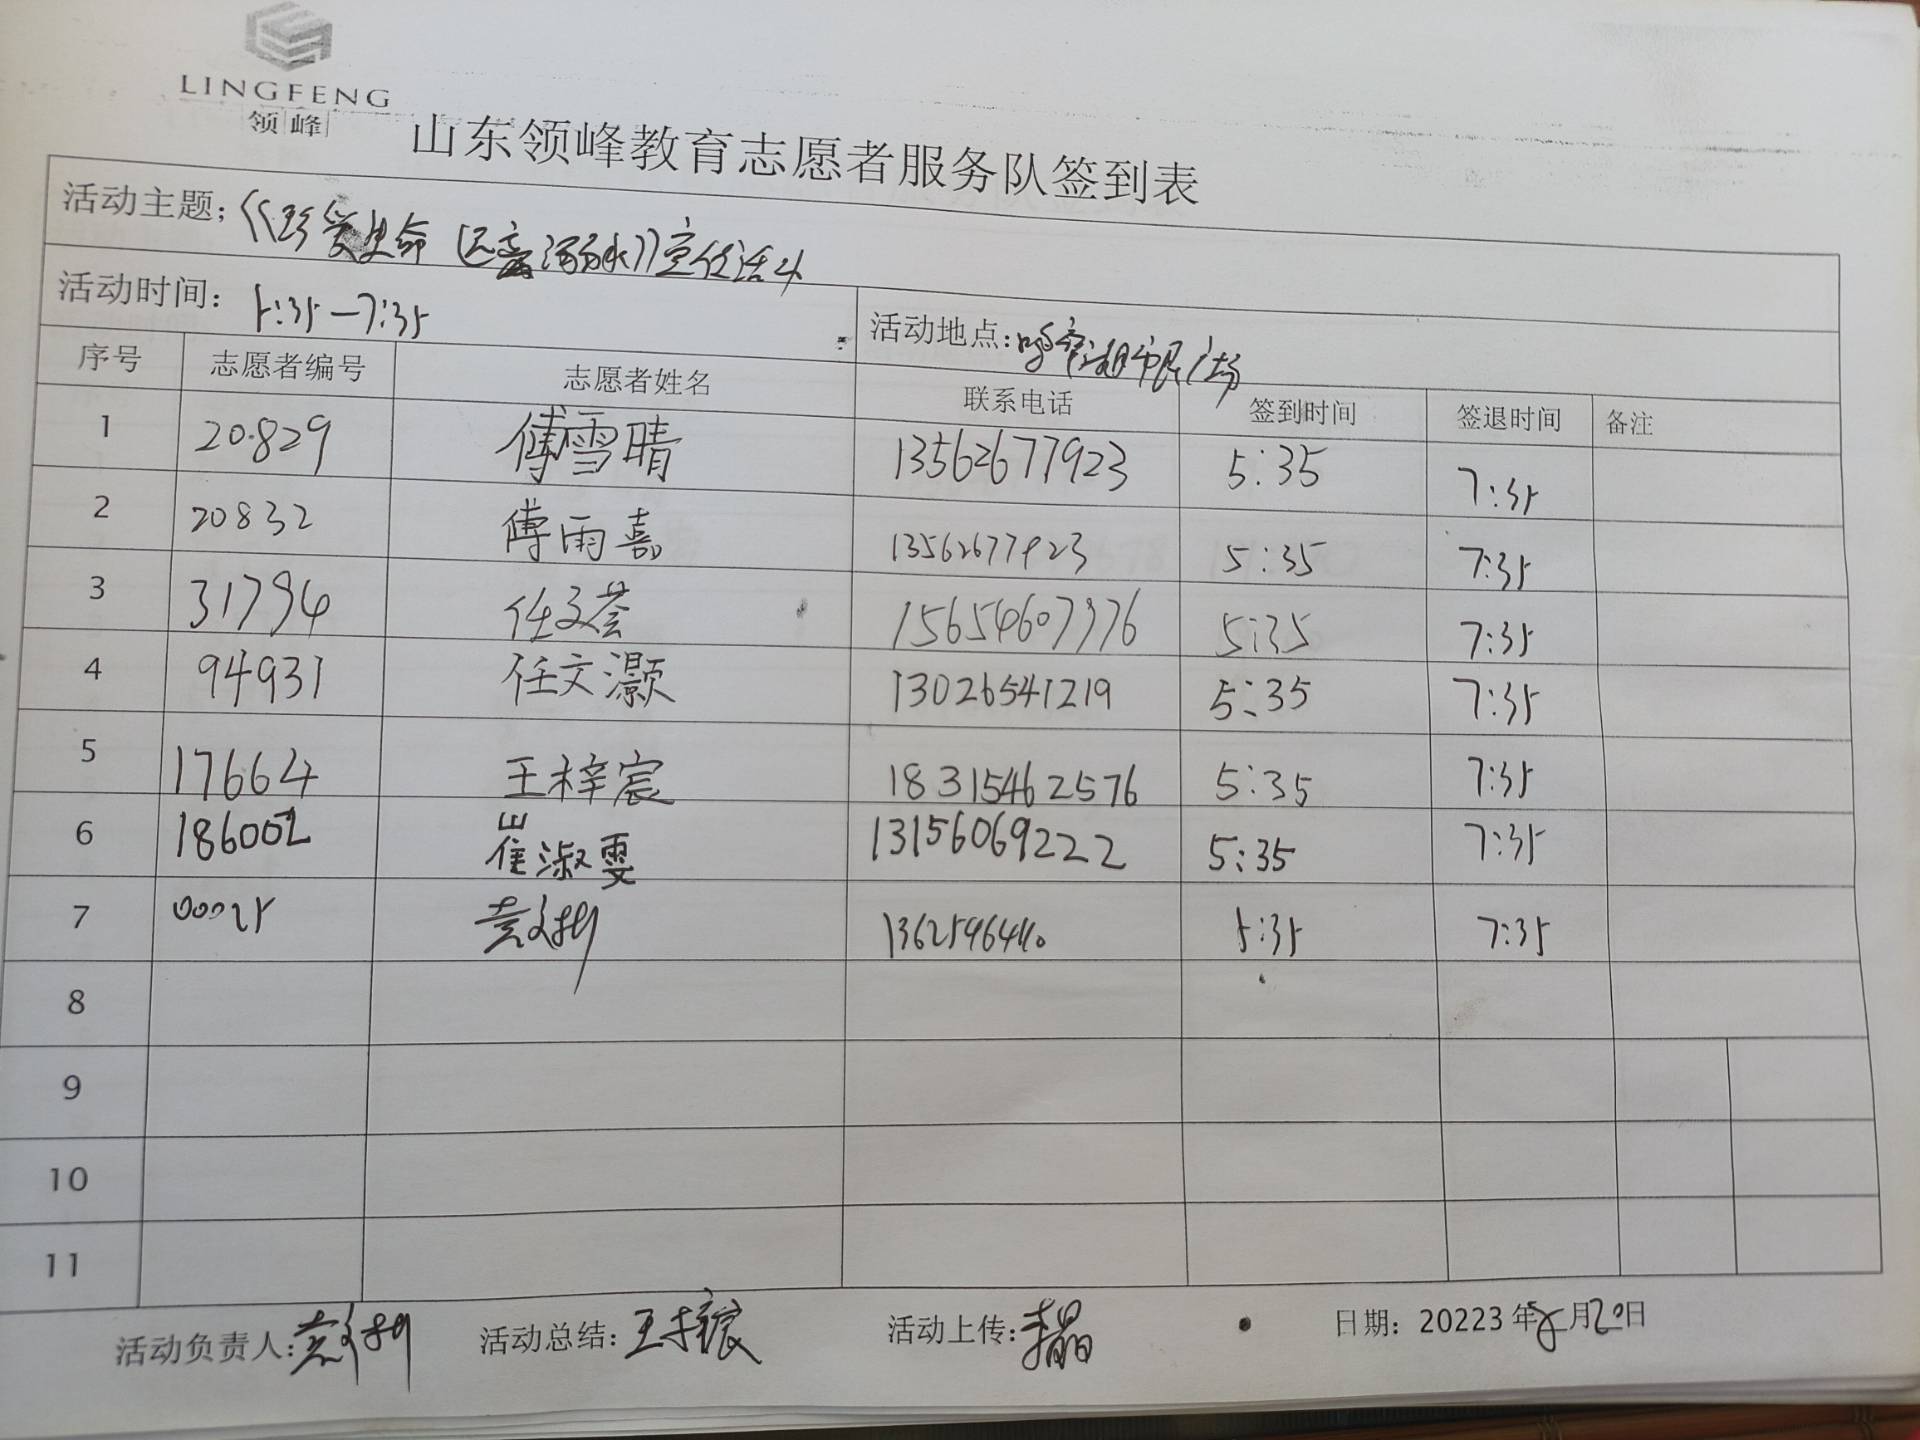 LINGFENG
领峰
山东领峰教育志愿者服务队签到表
活动主题;《珍爱生命 远离溺水》宣传活动
活动时间: 5:35—7:35 活动地点: 市民广场
序号 志愿者编号 志愿者姓名 联系电话 签到时间 签退时间 备注
1 20829 傅雪晴 13562677923 5:35 7:35
2 20832 傅雨嘉 13562677923 5:35 7:35
3 31794 任文荟 15654607976 5:35 7:35
4 94931 任文灏 13026541219 5:35 7:35
5 17664 王梓宸 18315462576 5:35 7:35
6 186002 崔淑雯 13156069222 5:35 7:35
7 00025 5:35 7:35
8
9
10
11
活动负责人: 活动总结:王梓宸 活动上传:李晶 日期: 20223年8月20日